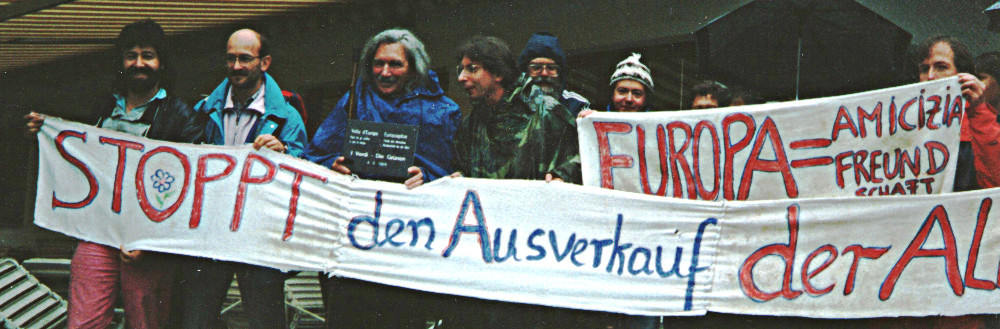 STOPPT den Ausverkauf der AL
EUROPA = AMICIZIA
FREUND
SCHAFT
I Verdi - Die Grünen